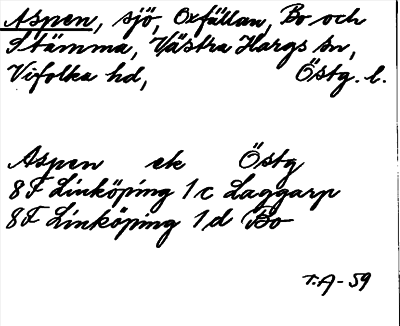 Aspen, sjö, Oxfällan, Bo och
Stämma, Västra Hargs sn,
Vifolka hd, Östg. l.
Aspen ek Östg
8F Linköping 1c Laggarp
8F Linköping 1d Bo
T.A-59